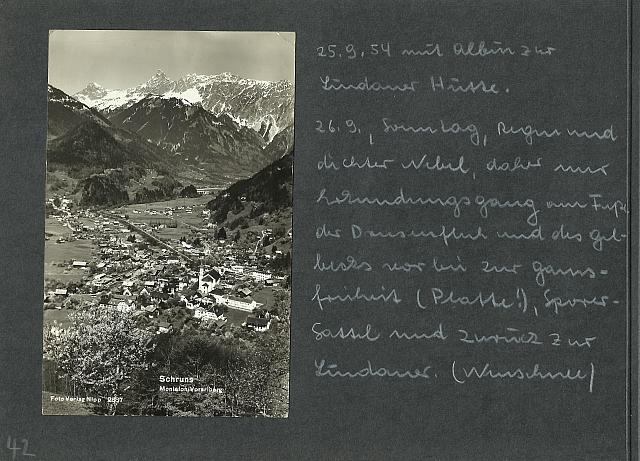 25.9.54 mit Albin zur
Lindauer Hütte.
26.9., Sonntag, Regen und
dichter Nebel, daher nur
Erkundungsgang am Fuße
der Drusenfluh und des
vorbei zur Gams-
freiheit (Platte!), Sporer-
Sattel und zurück zur
Lindauer. (Neuschnee)
Schruns
Montafon, Vorarlberg
Foto Verlag 2837
42